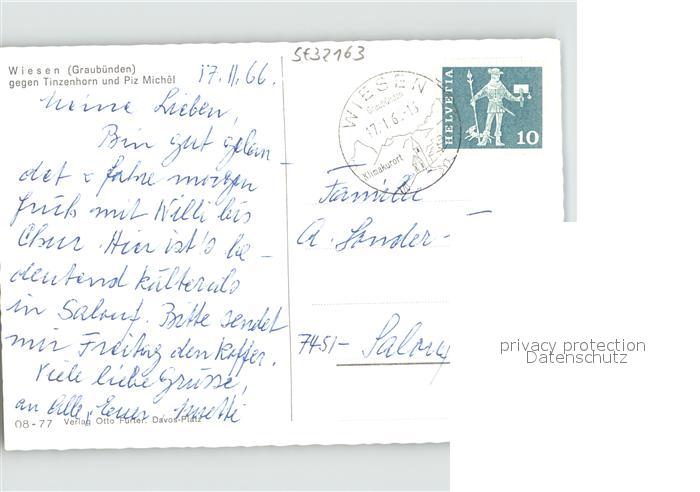 Wiesen (Graubünden)
gegen Tinzenhorn und Piz Michèl
SE32163
17.II.66.
Meine Lieben,
Bin gut gelan-
det & fahre morgen
früh mit Willi bis
Chur. Hier ist's be-
deutend kälter als
in Salouf. Bitte sendet
mir Freitag den Koffer.
Viele liebe Grüsse,
an Alle, Euer
08-77 Verlag Otto Furter, Davos-Platz
WIESEN
Graubünden
Klimakurort
HELVETIA
10
Familie
A. Sonder-
7451- Salouf
privacy protection
Datenschutz